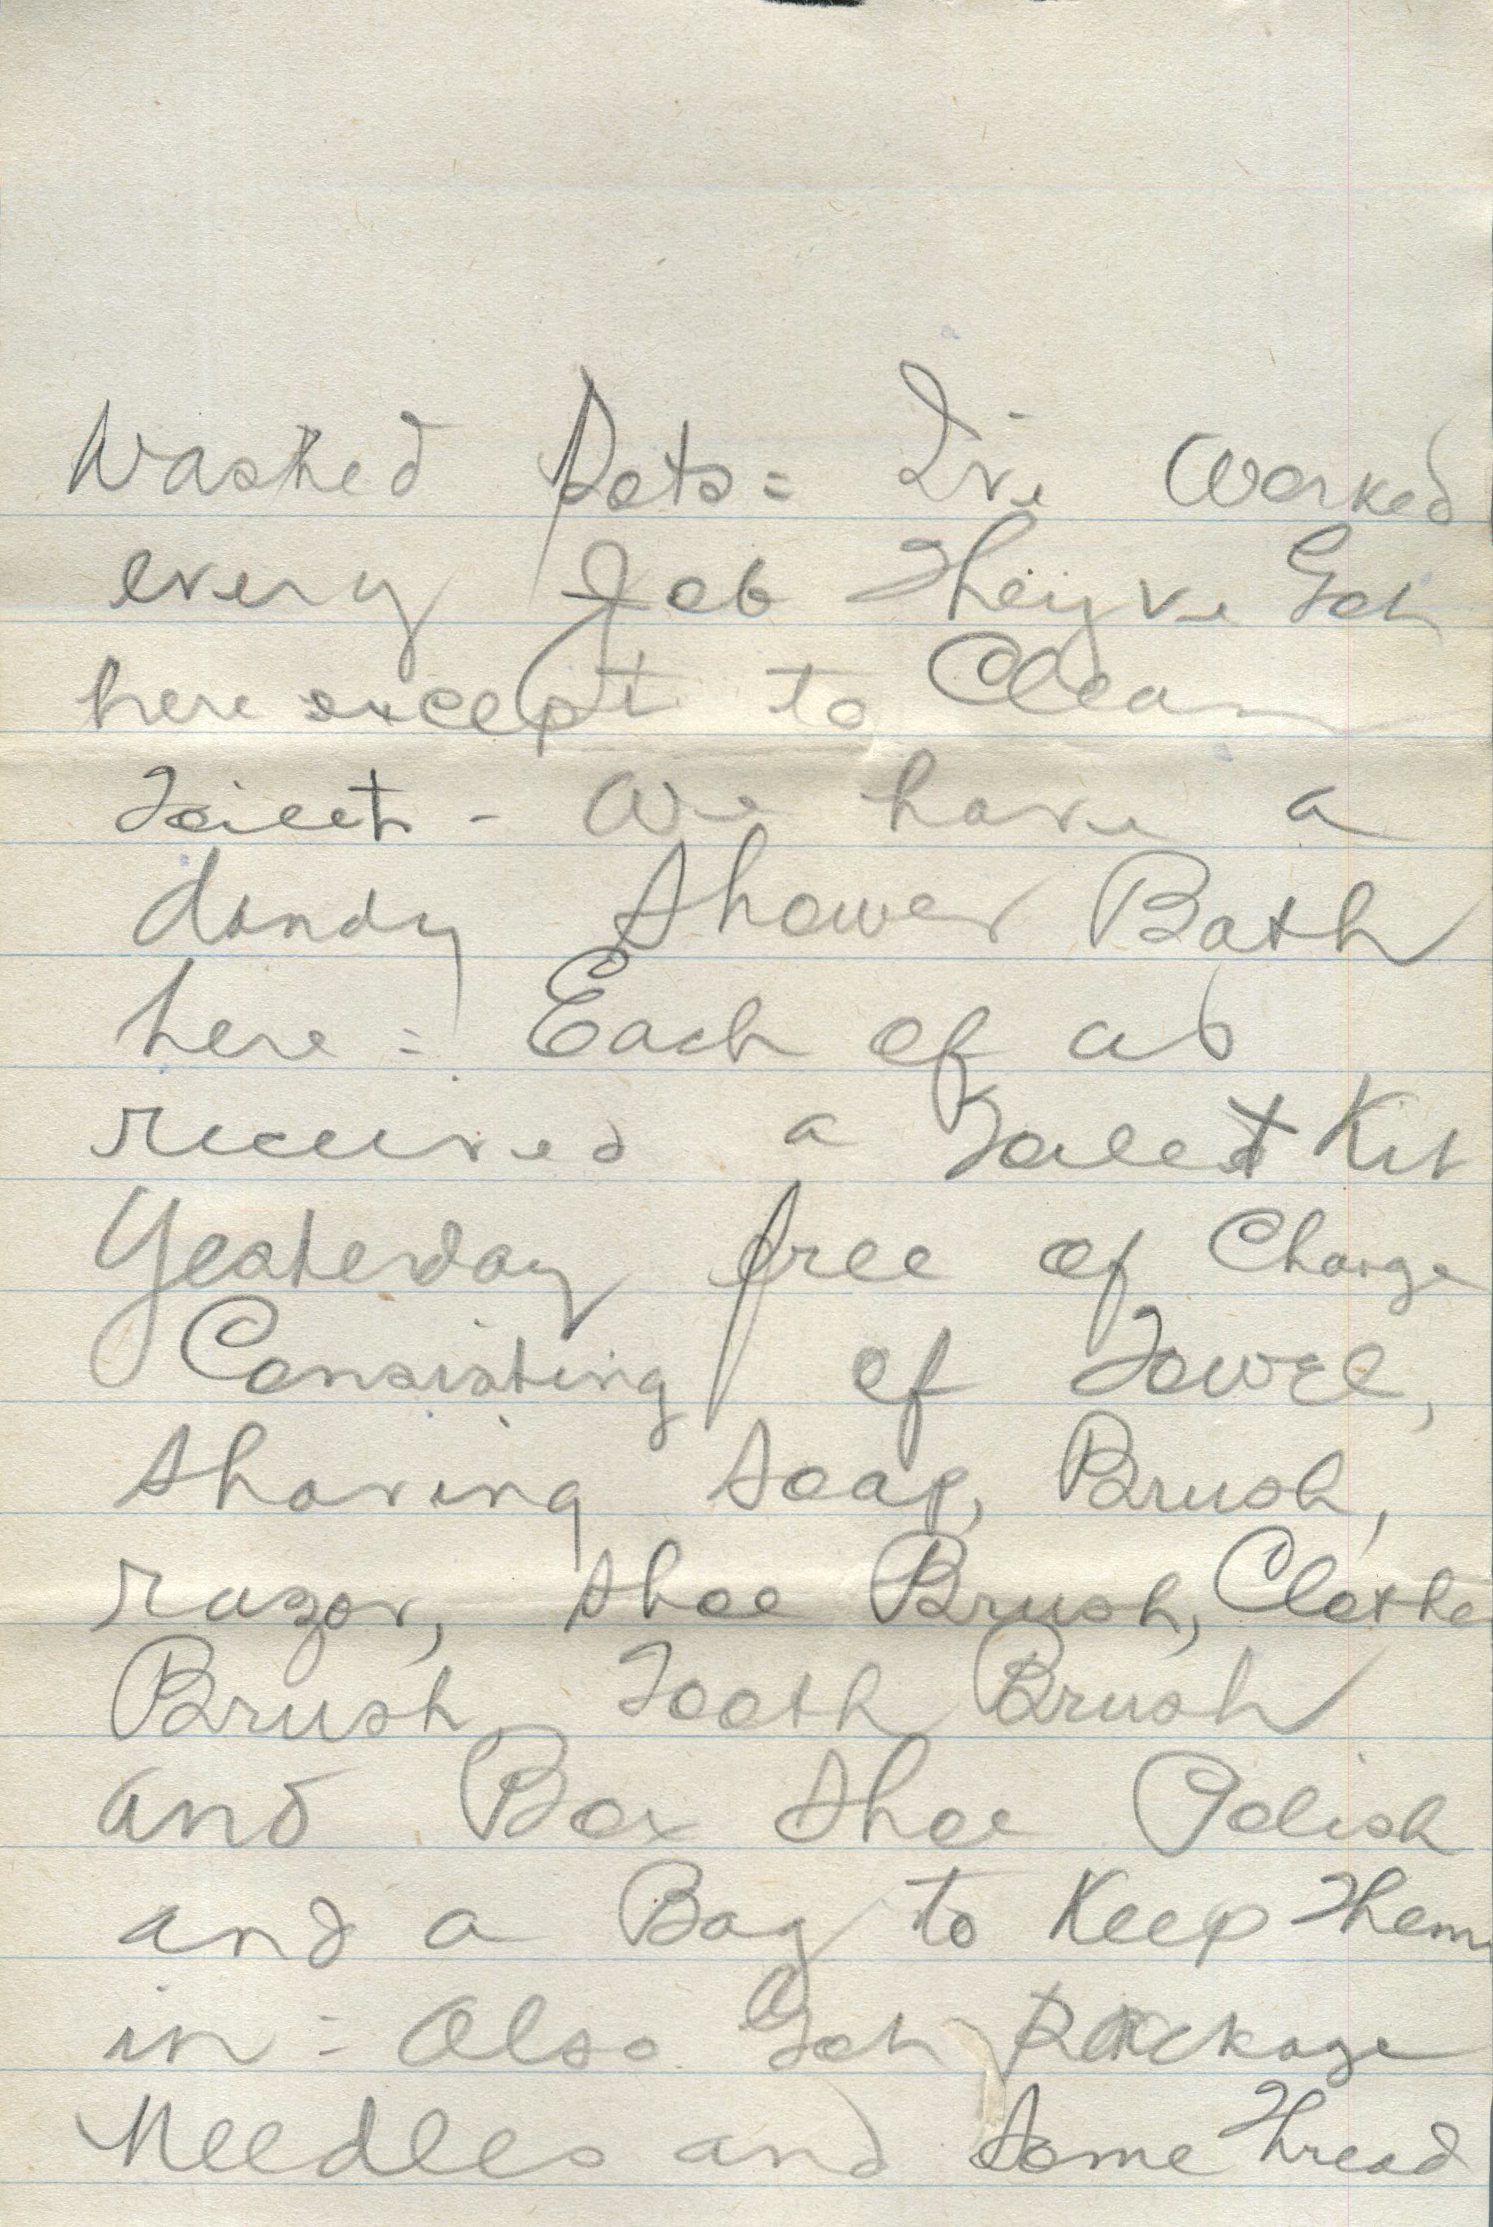 Washed Pots = I've Worked
every Job Theiyve Got
here except to Clean
Toilet - We have a
dandy Shower Bath
here = Each of us
received a Toilet Kit
Yesterday free of Charge
Consisting of Towel,
Shaving Soap, Brush,
razor, Shoe Brush, Clothes
Brush Tooth Brush
and Box Shoe Polish
and a Bag to Keep Them
in = Also Got Package
Needles and Some Thread